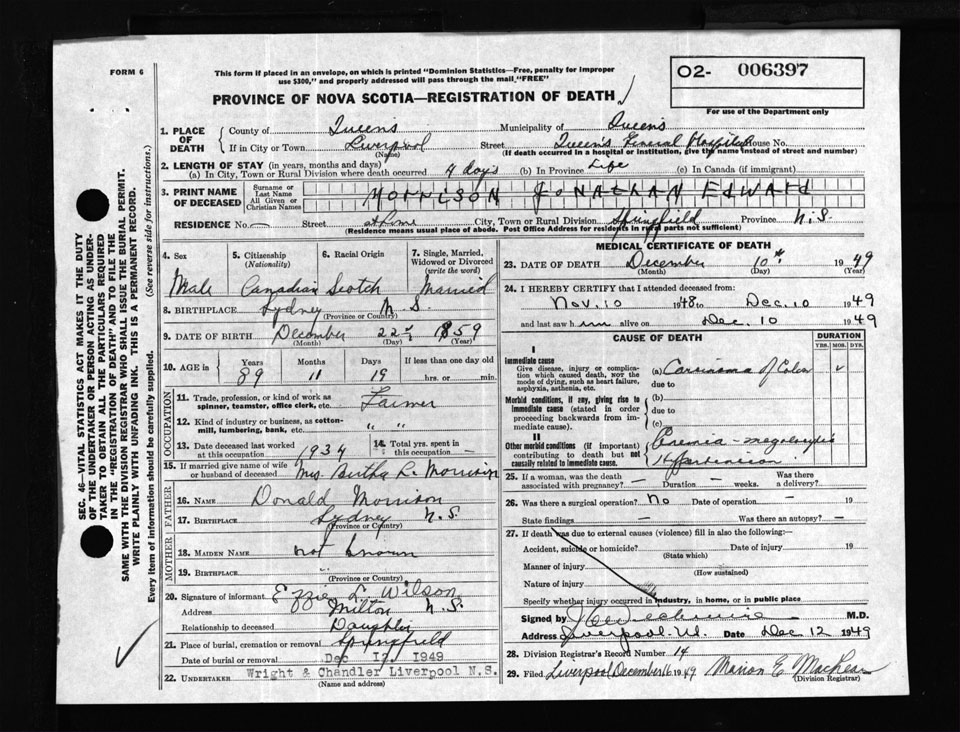 FORM 6
This form if placed in an envelope, on which is printed "Dominion Statistics—Free, penalty for improper
use $300," and properly addressed will pass through the mail, "FREE"
PROVINCE OF NOVA SCOTIA—REGISTRATION OF DEATH
O2- 006397
For use of the Department only
1. PLACE OF DEATH { County of Queens Municipality of Queens
If in City or Town Liverpool (Name) Street Queen's General Hospital House No.
(If death occurred in a hospital or institution, give the name instead of street and number)
2. LENGTH OF STAY (in years, months and days)
(a) In City, Town or Rural Division where death occurred 4 days (b) In Province Life (c) In Canada (if immigrant)
3. PRINT NAME OF DECEASED { Surname or Last Name All Given or Christian Names MORRISON JONATHAN EDWARD
RESIDENCE No. — Street at home City, Town or Rural Division Springfield Province N.S.
(Residence means usual place of abode. Post Office Address for residents in rural parts not sufficient)
4. Sex Male
5. Citizenship (Nationality) Canadian
6. Racial Origin Scotch
7. Single, Married, Widowed or Divorced (write the word) Married
8. BIRTHPLACE Sydney N.S. (Province or Country)
9. DATE OF BIRTH December (Month) 22nd (Day) 1859 (Year)
10. AGE in Years 89 Months 11 Days 19 If less than one day old hrs. or min.
OCCUPATION
11. Trade, profession, or kind of work as spinner, teamster, office clerk, etc. Farmer
12. Kind of industry or business, as cotton-mill, lumbering, bank, etc. " "
13. Date deceased last worked at this occupation 1934 14. Total yrs. spent in this occupation
15. If married give name of wife or husband of deceased Mrs. Bertha L. Morrison
FATHER
16. NAME Donald Morrison
17. BIRTHPLACE Sydney N.S. (Province or Country)
MOTHER
18. MAIDEN NAME not known
19. BIRTHPLACE " (Province or Country)
20. Signature of informant L. Wilson
Address Milton N.S.
Relationship to deceased Daughter
21. Place of burial, cremation or removal Springfield
Date of burial or removal Dec 1949
22. UNDERTAKER Wright & Chandler Liverpool N.S.
(Name and address)
MEDICAL CERTIFICATE OF DEATH
23. DATE OF DEATH December (Month) 10th (Day) 1949 (Year)
24. I HEREBY CERTIFY that I attended deceased from:
Nov. 10 1948 to Dec. 10 1949
and last saw him alive on Dec. 10 1949
CAUSE OF DEATH DURATION
YRS. MOS. DYS.
I
Immediate cause
Give disease, injury or complication which caused death, NOT the mode of dying, such as heart failure, asphyxia, asthenia, etc.
(a) Carcinoma of Colon
due to
Morbid conditions, if any, giving rise to immediate cause (stated in order proceeding backwards from immediate cause).
(b)
due to
(c)
II
Other morbid conditions (if important) contributing to death but not causally related to immediate cause.
Hypertension
25. If a woman, was the death associated with pregnancy? — Duration — weeks. Was there a delivery? —
26. Was there a surgical operation? No Date of operation — 19
State findings — Was there an autopsy? —
27. If death was due to external causes (violence) fill in also the following:
Accident, suicide or homicide? (State which) Date of injury 19
Manner of injury (How sustained)
Nature of injury
Specify whether injury occurred in industry, in home, or in public place
Signed by M.D.
Address Liverpool N.S. Date Dec 12 1949
28. Division Registrar's Record Number 14
29. Filed Liverpool December 16 1949 Marion E. MacKean
(Division Registrar)
SEC. 46—VITAL STATISTICS ACT MAKES IT THE DUTY
OF THE UNDERTAKER OR PERSON ACTING AS UNDERTAKER TO OBTAIN ALL THE PARTICULARS REQUIRED
IN THE "REGISTRATION OF DEATH" AND TO FILE THE
SAME WITH THE DIVISION REGISTRAR WHO SHALL ISSUE THE BURIAL PERMIT.
WRITE PLAINLY WITH UNFADING INK. THIS IS A PERMANENT RECORD.
Every item of information should be carefully supplied. (See reverse side for instructions.)